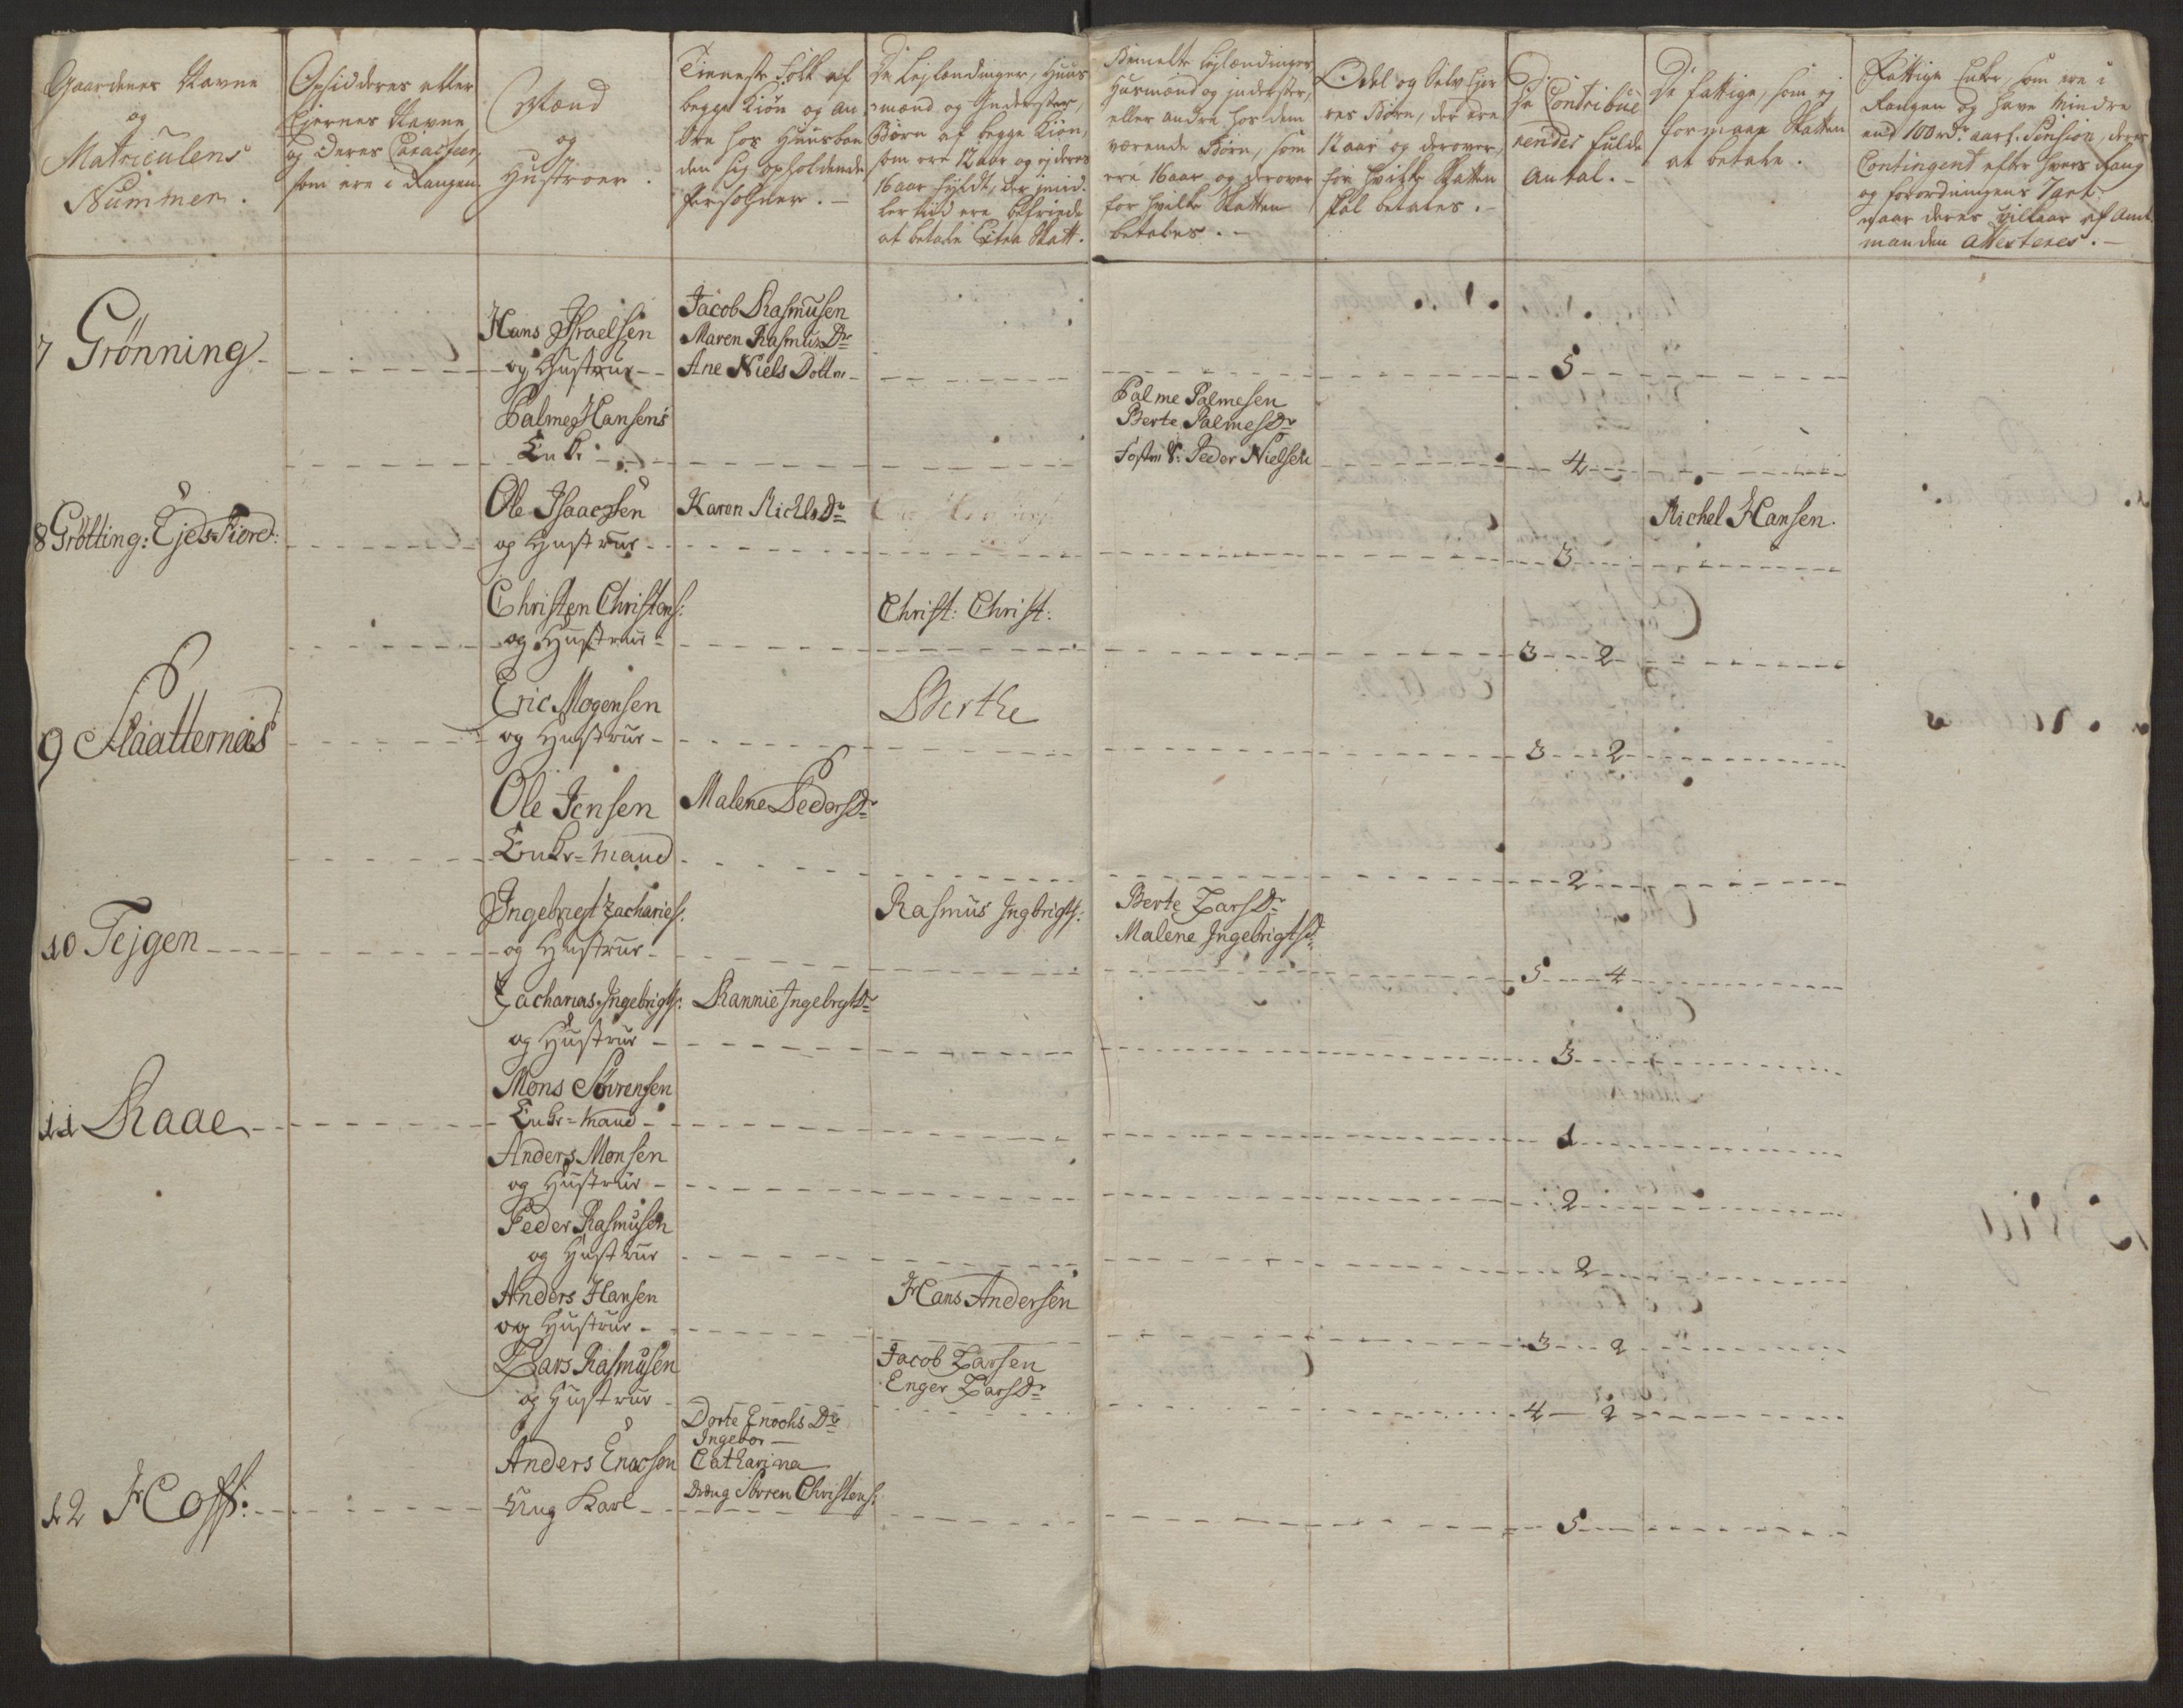 Gaardenes Navne
og
Matriculens
Nummer.
Opsidderes eller
Ejernes Navne
og deres Caracteer,
som ere i Rangen.
Mænd
og
Hustroer.
Tieneste Folk af
begge Kiøn og an-
dre hos Huusbon
den sig opholdende
Persohner.
De Lejlændinger, Huus
mænd og Inderster,
Børn af begge Kiøn,
som ere 12 aar og ej deres
16 aar fyldt, der imid-
lertiid ere befriede
at betale Extra Skatt.
Bemelte Lejlændinger
Husmænd og inderster,
eller andre hos dem
værende Børn, som
ere 16 aar og derover
for hvilke Skatten
betales.
Odel og Selv Ejer
res Børn, der ere
12 aar og derover,
for hvilke Skatten
skal betales.
De Contribue
rendes fulde
Antal.
De fattige, som ej
formaar Skatten
at betale.
Fattige Enker, som ere i
Rangen og have Mindre
end 100 rdr aarl. Pension, deres
Contingent efter hvers Rang
og forordningens Taxt
naar deres vilkaar af Amt
manden Attesteres.
7 Grønning
Hans Jsraelsen
og Hustrue
Jacob Rasmusen
Maren Rasmus Dr
Ane Niels Dotter
5
Palme Hansens
Enke
Palme Palmesen
Berte Palmes Dr
Foster S: Peder Nielsen
4
8 Grøtting: Ejes Fiord:
Ole Jsaacsen
og Hustrue
Karen Michls Dr
3
Michel Hansen.
Christen Christens:
og Hustrue
Christ: Christ:
3 2
9 Slaatternæs
Eric Mogensen
og Hustrue
Berthe
3 2
Ole Jensen
Enke-Mand
Malene Peders Dr
2
10 Tejgen
Jngebrigt Zacharies:
og Hustrue
Rasmus Jngbrigts:
Berte Lars Dr
Malene Jngebrigts Dr
5 4
Zacharias Jngebrigts:
og Hustrue
Rannie Jngebrgts Dr
3
11 Raae
Mons Sørensen
Enke-Mand
1
Anders Monsen
og Hustrue
2
Peder Rasmusen
og Hustrue
2
Anders Hansen
og Hustrue
Hans Andersen
3 2
Lars Rasmusen
og Hustrue
Jacob Larsen
Enger Lars Dr
4 2
12 Hoff:
Anders Enocsen
Ung Karl
Dorte Enochs Dr
Jngebor
Catharina
Dreng Sørren Christens:
5